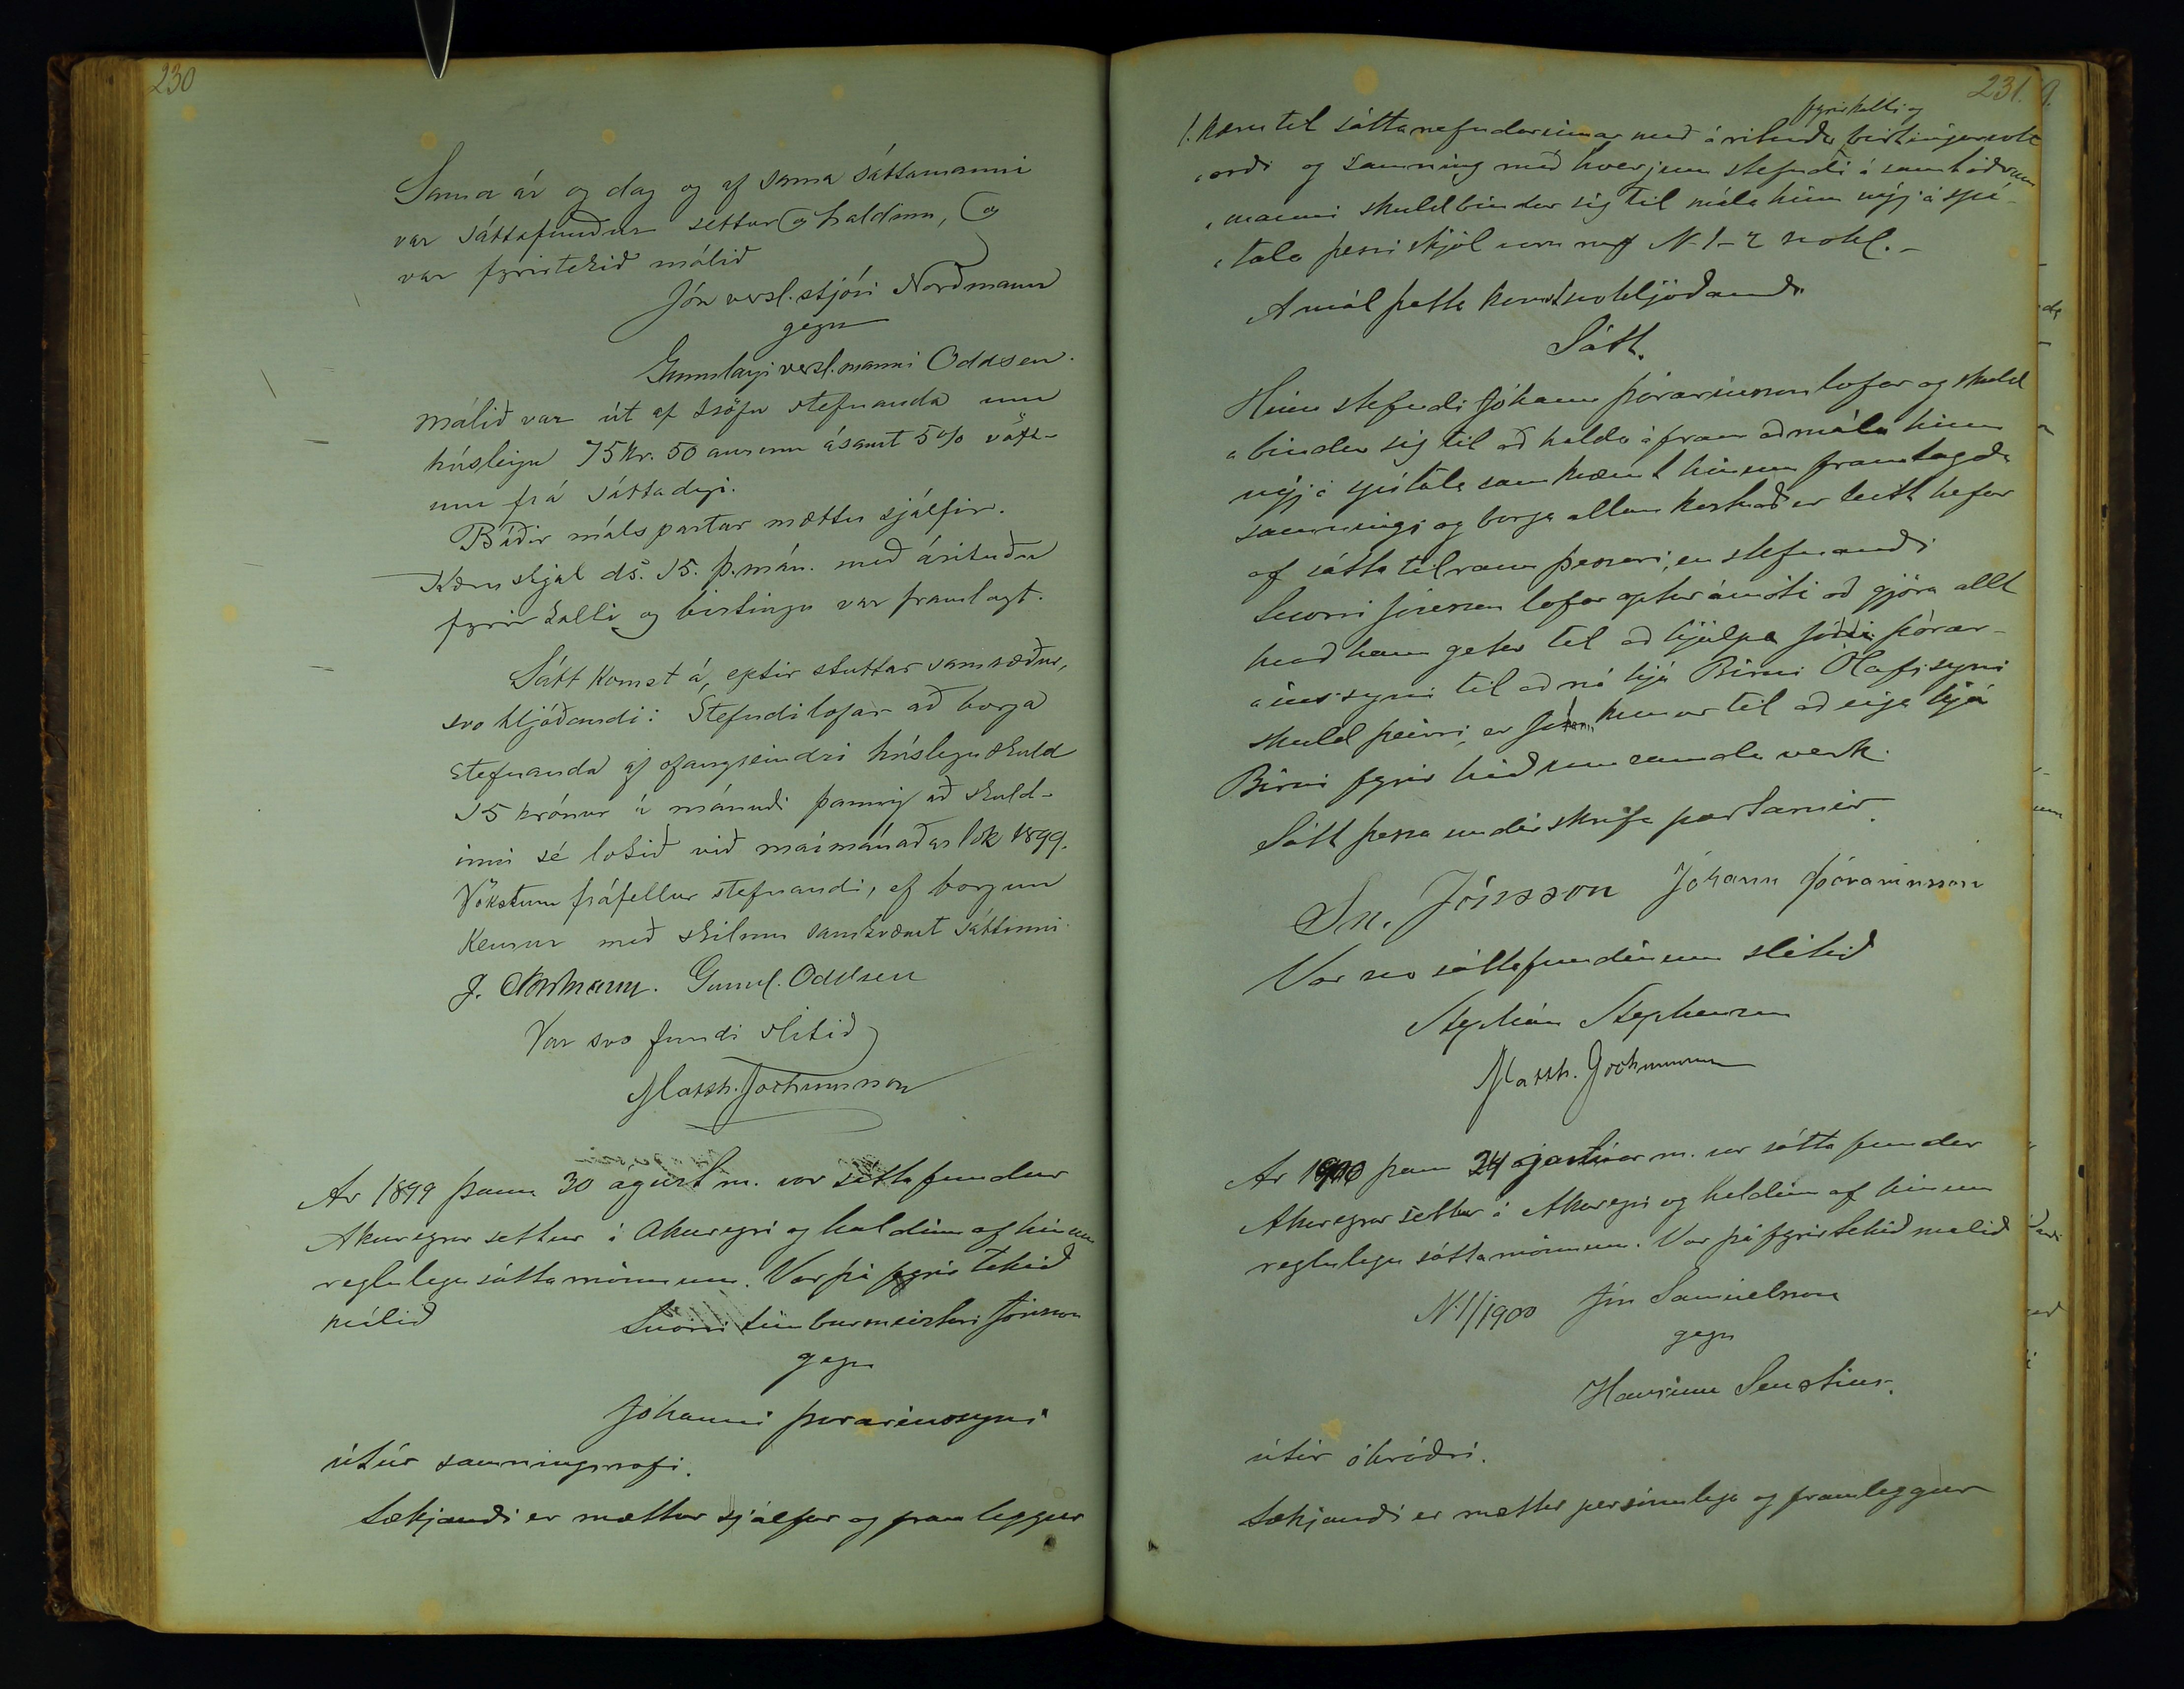 230
Sama ár og dag og af sama sáttamanni
var sáttafundur settur og haldinn, og
var fyrirtekið málið
Jón versl.stjóri Norðmann
gegn
Gunnlaugi verzl.manni Oddsen.
Málið var út af kröfu stefnanda um
húsleigu 75 kr. 50 aurum ásamt 5% vöxt-
um frá sáttadegi.
Báðir málspartar mættu sjálfir.
Kæruskjal ds. 15. þ.mán. með árituðu
fyrirkalli og birtingu var framlagt.
Sátt komst á, eptir stuttar samræður,
svo hljóðandi: Stefndi lofar að borga
stefnanda af ofangreindri húsleiguskuld
15 krónur á mánuði þannig að skuld-
inni sé lokið við maímánaðarlok 1899.
Vöxtum fráfellur stefnandi, ef borgun
kemur með skilum samkvæmt sáttinni.
J. Norðmann. Gunnl. Oddsen
Var svo fundi slitið
Matth. Jochumsson
Ár 1899 þann 30 agúst m. var sáttafundur
Akureyrar settur á Akureyri og haldinn af hinum
reglulegu sáttamönnum. Var þá fyrir tekið
málið Snorri timburmeistari Jónsson
gegn
Jóhanni Þórarinssyni
útúr samningsrofi.
Sækjandi er mættur sjálfur og fram leggur
231.
fyrirkalli og
1. kæru til sáttanefndarinnar með árituðu birtingarvott
orði og samning með hverjum stefndi á samt öðrum
manni skuldbindur sig til mála hinn nýja spí-
tala þessi skjöl eru no N. 1-2 svohl. -
Á mál þetta komst svohljóðandi
Sátt.
Hinn stefndi Jóhann Þórarinsson lofar og skuld
bindur sig til að halda áfram að mála hinn
nýja spítala samkvæmt hinum framlagða
samningi og borga allan kostnað er leitt hefur
af sátta tilraun þessari, en stefnandi
Snorri Jónsson lofar aptur á móti að gjöra allt
hvað hann getur til að hjálpa Jóh. Þórar-
inssyni til að ná hjá Birni Ólafssyni
skuld þeirri, er Jóhann kemur til að eiga hjá
Birni fyrir hið um samda verk.
Sátt þessa undirskrifa partarnir.
Sn. Jónsson Jóhann Þórarinsson
Var svo sáttafundinum slitið
Stephán Stephensen
Matth. Jochumsson
Ár 1900 þann 24 janúar m. var sátta fundur
Akureyrar settur á Akureyri og haldinn af hinum
reglulegu sáttamönnum. Var þá fyrirtekið málið
N. 1/1900 Jón Samúelsson
gegn
útúr óhróðri.
Sækjandi er mættur persónulega og framleggur